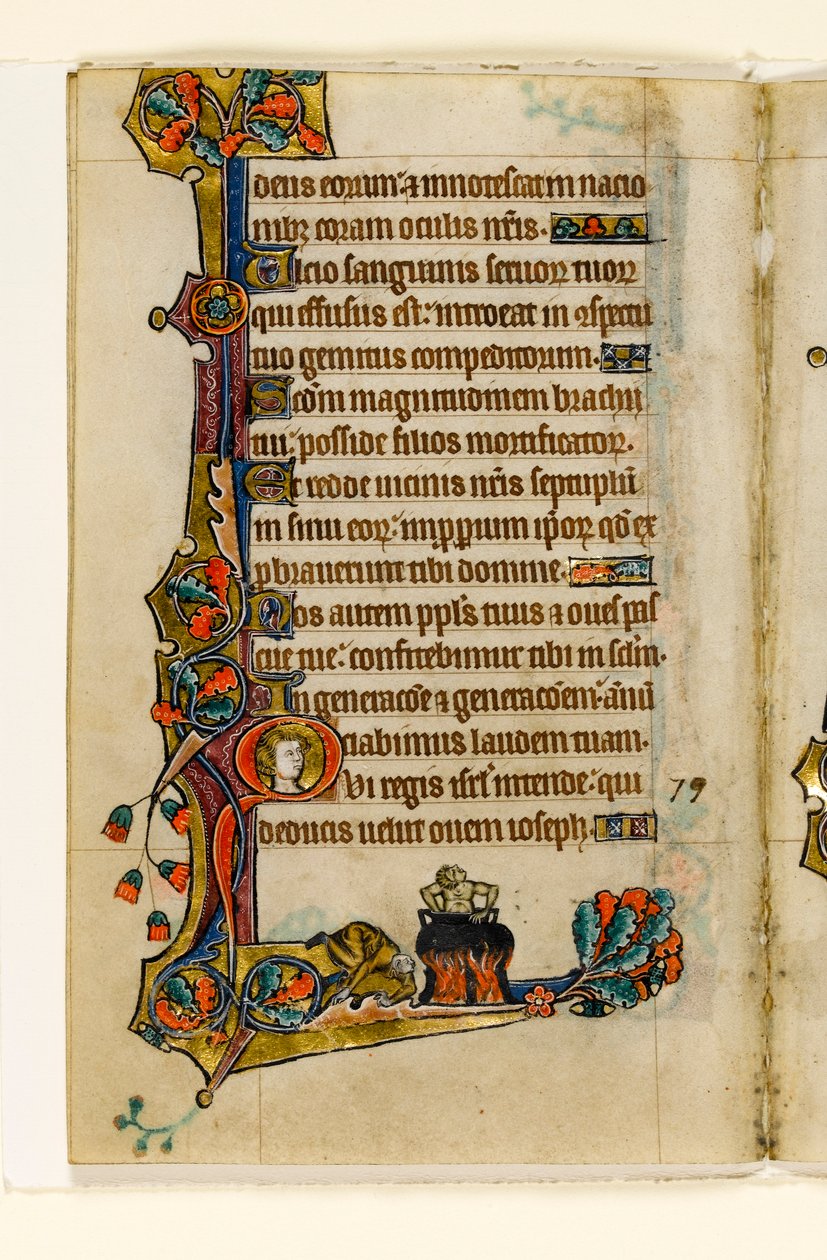 deus eorum: ⁊ innotescat in nacio
nibꝫ coram oculis nr̄is.
Ulcio sanguinis seruoꝝ tuoꝝ
qui effusus est: introeat in ꝯspectu
tuo gemitus compeditorum.
Scd̄m magnitudinem brachii
tui: posside filios mortificatoꝝ.
Et redde uicinis nr̄is septuplū
in sinu eoꝝ: imꝓꝑium ip̄oꝝ qd̄ ex
ꝓbrauerunt tibi domine.
Nos autem ppl̄s tuus ⁊ oues pas
cue tue: confitebimur tibi in sc̄lm.
In generacōe ⁊ generacōem: ānū
ciabimus laudem tuam.
QVi regis isrl̄ intende: qui
deducis uelut ouem ioseph.
79